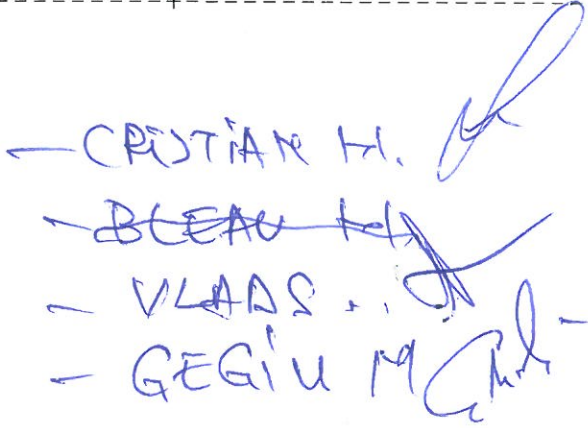 - CRISTIAN M.
- BLEAU M.
- VLAD S..
- GEGIU M